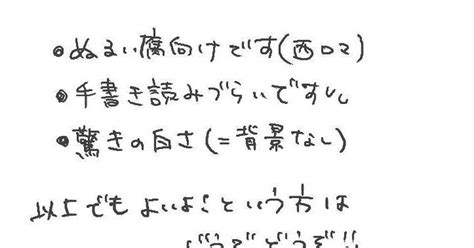 ●ぬるい腐向けです(西ロマ)
●手書き読みづらいですし
●驚きの白さ(=背景なし)
以上でもよいよ!という方は
どうぞどうぞ!!